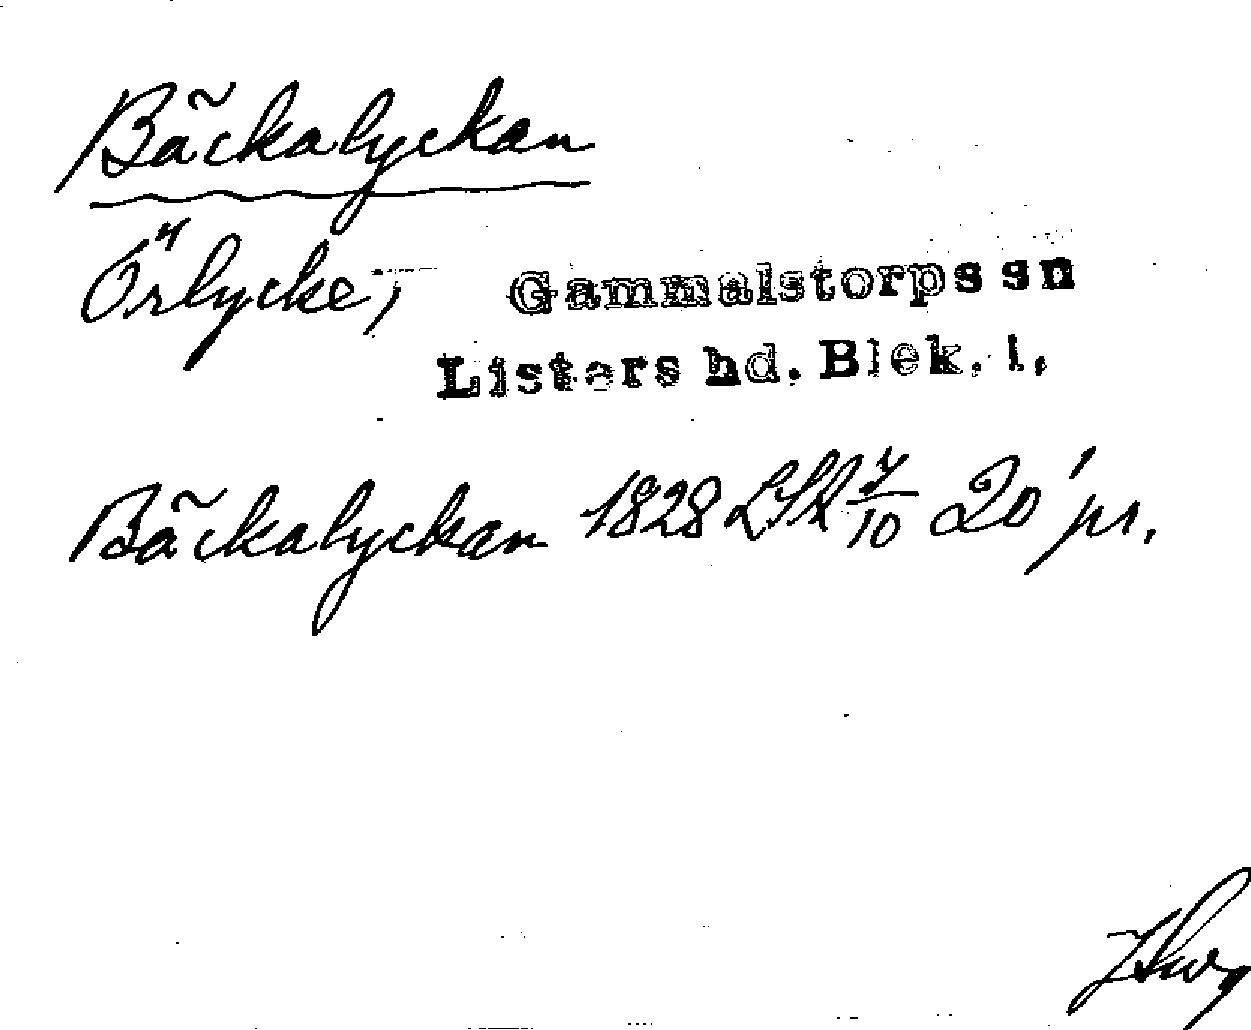 Bäckalyckan
Örlycke, Gammalstorps sn
Listers hd. Blek. l.
Bäckalyckan 1828 LSA 7/10 20 pr.